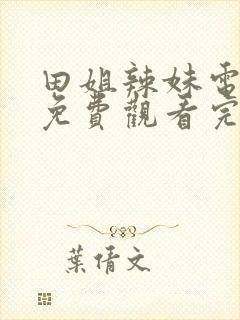 田姐辣妹電
免費觀看完
葉倩文